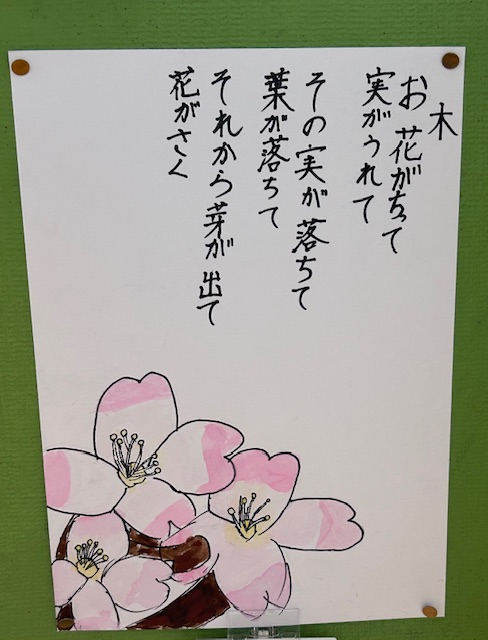 木
お花がちって
実がうれて
その実が落ちて
葉が落ちて
それから芽が出て
花がさく